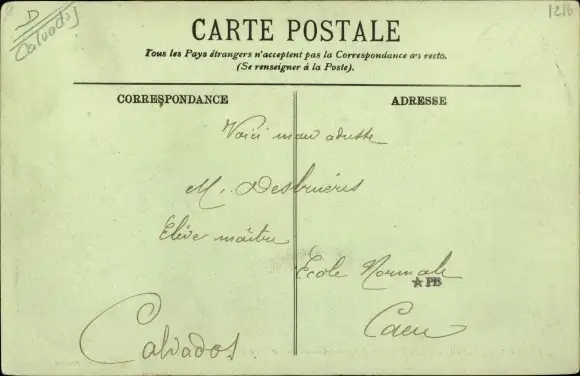 D
Calvados
1216
CARTE POSTALE
Tous les Pays étrangers n'acceptent pas la Correspondance au recto.
(Se renseigner à la Poste).
CORRESPONDANCE
ADRESSE
Voici mon adresse
M. Desbruères
Elève maître
Ecole Normale
★ PB
Caen
Calvados.